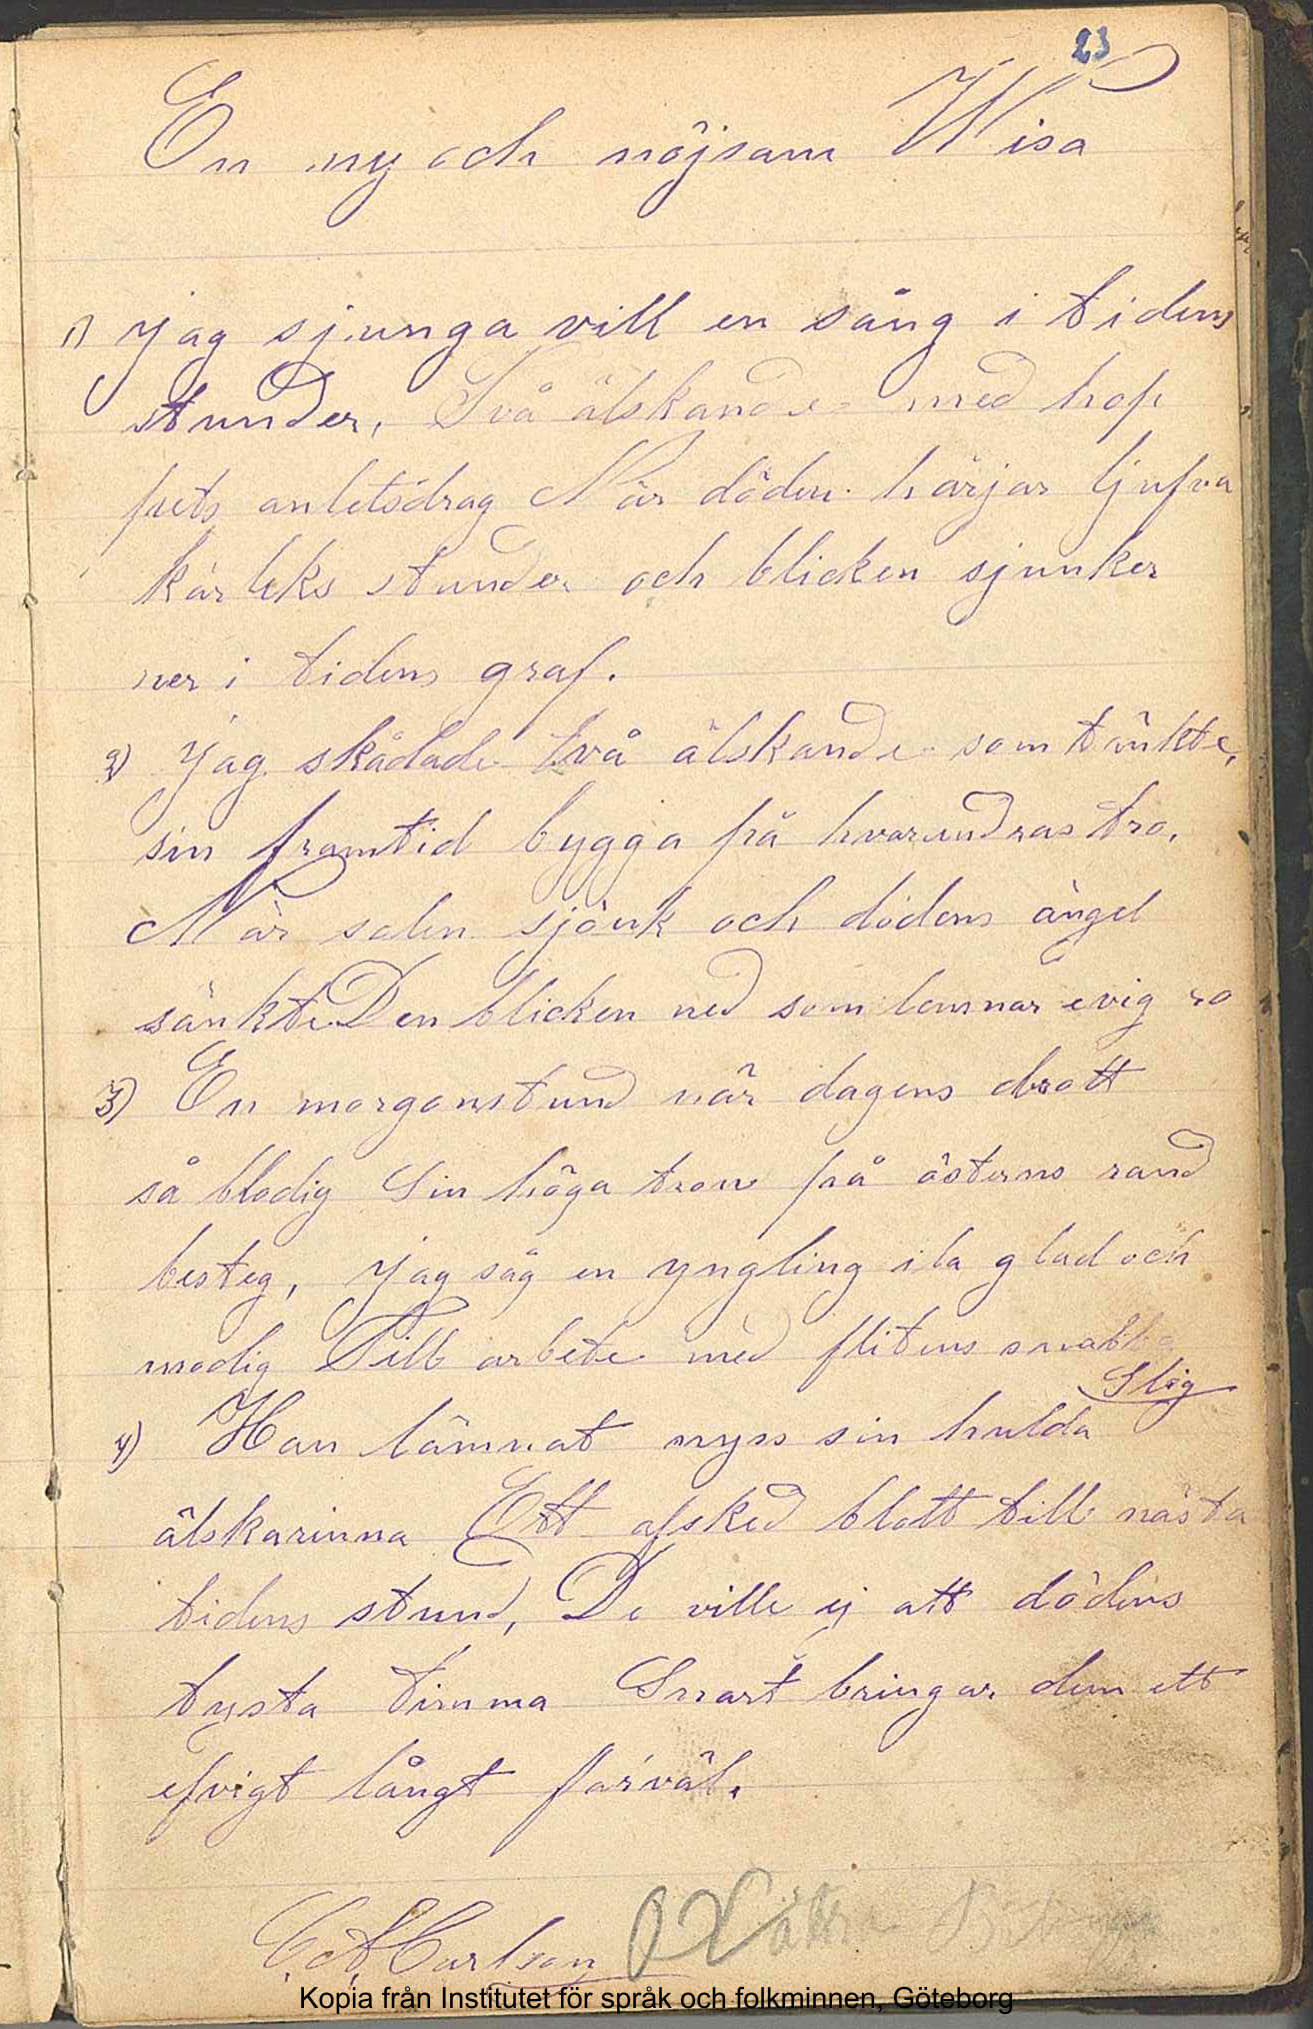 23
En ny och nöjsam Wisa
1) Jag sjunga vill en sång i tidens
stunder, Två älskande med hop
pets anletsdrag När döden härjar ljufva
kärleks stunder och blicken sjunker
ner i tidens graf.
2) Jag skådade två älskande som tänkte,
sin framtid bygga på hvarandras tro.
När solen sjönk och dödens ängel
sänkte Den blicken ned som lemnar evig ro
3) En morgonstund när dagens drott
så blodig Sin höga tron på österns rand
besteg, Jag såg en yngling ila glad och
modig Till arbete med flitens snabba
Steg
4) Han lämnat nyss sin hulda
älskarinna Ett afsked blott till nästa
tidens stund, De ville ej att dödens
tysta timma Snart bringar dem ett
efvigt långt farväl.
C. A. Carlson
Kopia från Institutet för språk och folkminnen, Göteborg